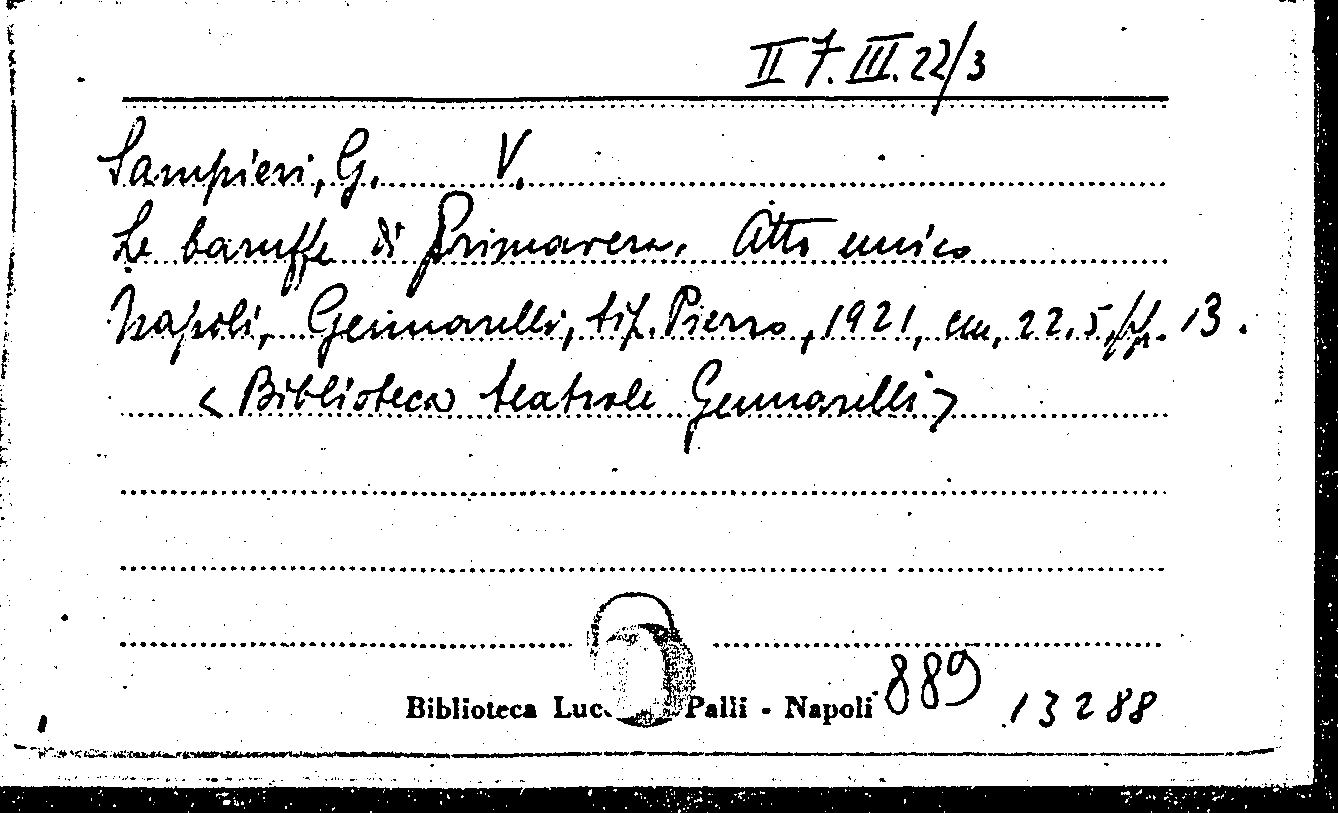 II 7. III. 22/3
Sampieri, G. V.
Le baruffe di Primavera. Atto unico
Napoli, Gennarelli, tip. Pierro, 1921, cm. 22.5, pp. 13.
<Biblioteca teatrale Gennarelli>
Biblioteca Palli - Napoli 889 13288